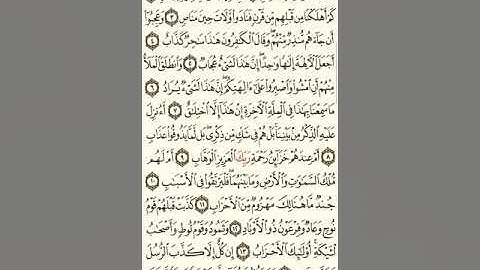 كَمْ أَهْلَكْنَا مِن قَبْلِهِم مِّن قَرْنٍ فَنَادَوا۟ وَّلَاتَ حِينَ مَنَاصٍ ٣ وَعَجِبُوٓا۟
أَن جَآءَهُم مُّنذِرٌ مِّنْهُمْ وَقَالَ ٱلْكَٰفِرُونَ هَٰذَا سَٰحِرٌ كَذَّابٌ ٤
أَجَعَلَ ٱلْءَالِهَةَ إِلَٰهًا وَٰحِدًا إِنَّ هَٰذَا لَشَىْءٌ عُجَابٌ ٥ وَٱنطَلَقَ ٱلْمَلَأُ
مِنْهُمْ أَنِ ٱمْشُوا۟ وَٱصْبِرُوا۟ عَلَىٰٓ ءَالِهَتِكُمْ إِنَّ هَٰذَا لَشَىْءٌ يُرَادُ ٦
مَا سَمِعْنَا بِهَٰذَا فِى ٱلْمِلَّةِ ٱلْءَاخِرَةِ إِنْ هَٰذَآ إِلَّا ٱخْتِلَٰقٌ ٧ أَءُنزِلَ
عَلَيْهِ ٱلذِّكْرُ مِنۢ بَيْنِنَا بَلْ هُمْ فِى شَكٍّ مِّن ذِكْرِى بَل لَّمَّا يَذُوقُوا۟ عَذَابِ
٨ أَمْ عِندَهُمْ خَزَآئِنُ رَحْمَةِ رَبِّكَ ٱلْعَزِيزِ ٱلْوَهَّابِ ٩ أَمْ لَهُم
مُّلْكُ ٱلسَّمَٰوَٰتِ وَٱلْأَرْضِ وَمَا بَيْنَهُمَا فَلْيَرْتَقُوا۟ فِى ٱلْأَسْبَٰبِ
١٠ جُندٌ مَّا هُنَالِكَ مَهْزُومٌ مِّنَ ٱلْأَحْزَابِ ١١ كَذَّبَتْ قَبْلَهُمْ قَوْمُ
نُوحٍ وَعَادٌ وَفِرْعَوْنُ ذُو ٱلْأَوْتَادِ ١٢ وَثَمُودُ وَقَوْمُ لُوطٍ وَأَصْحَٰبُ
لْـَٔيْكَةِ أُو۟لَٰٓئِكَ ٱلْأَحْزَابُ ١٣ إِن كُلٌّ إِلَّا كَذَّبَ ٱلرُّسُلَ